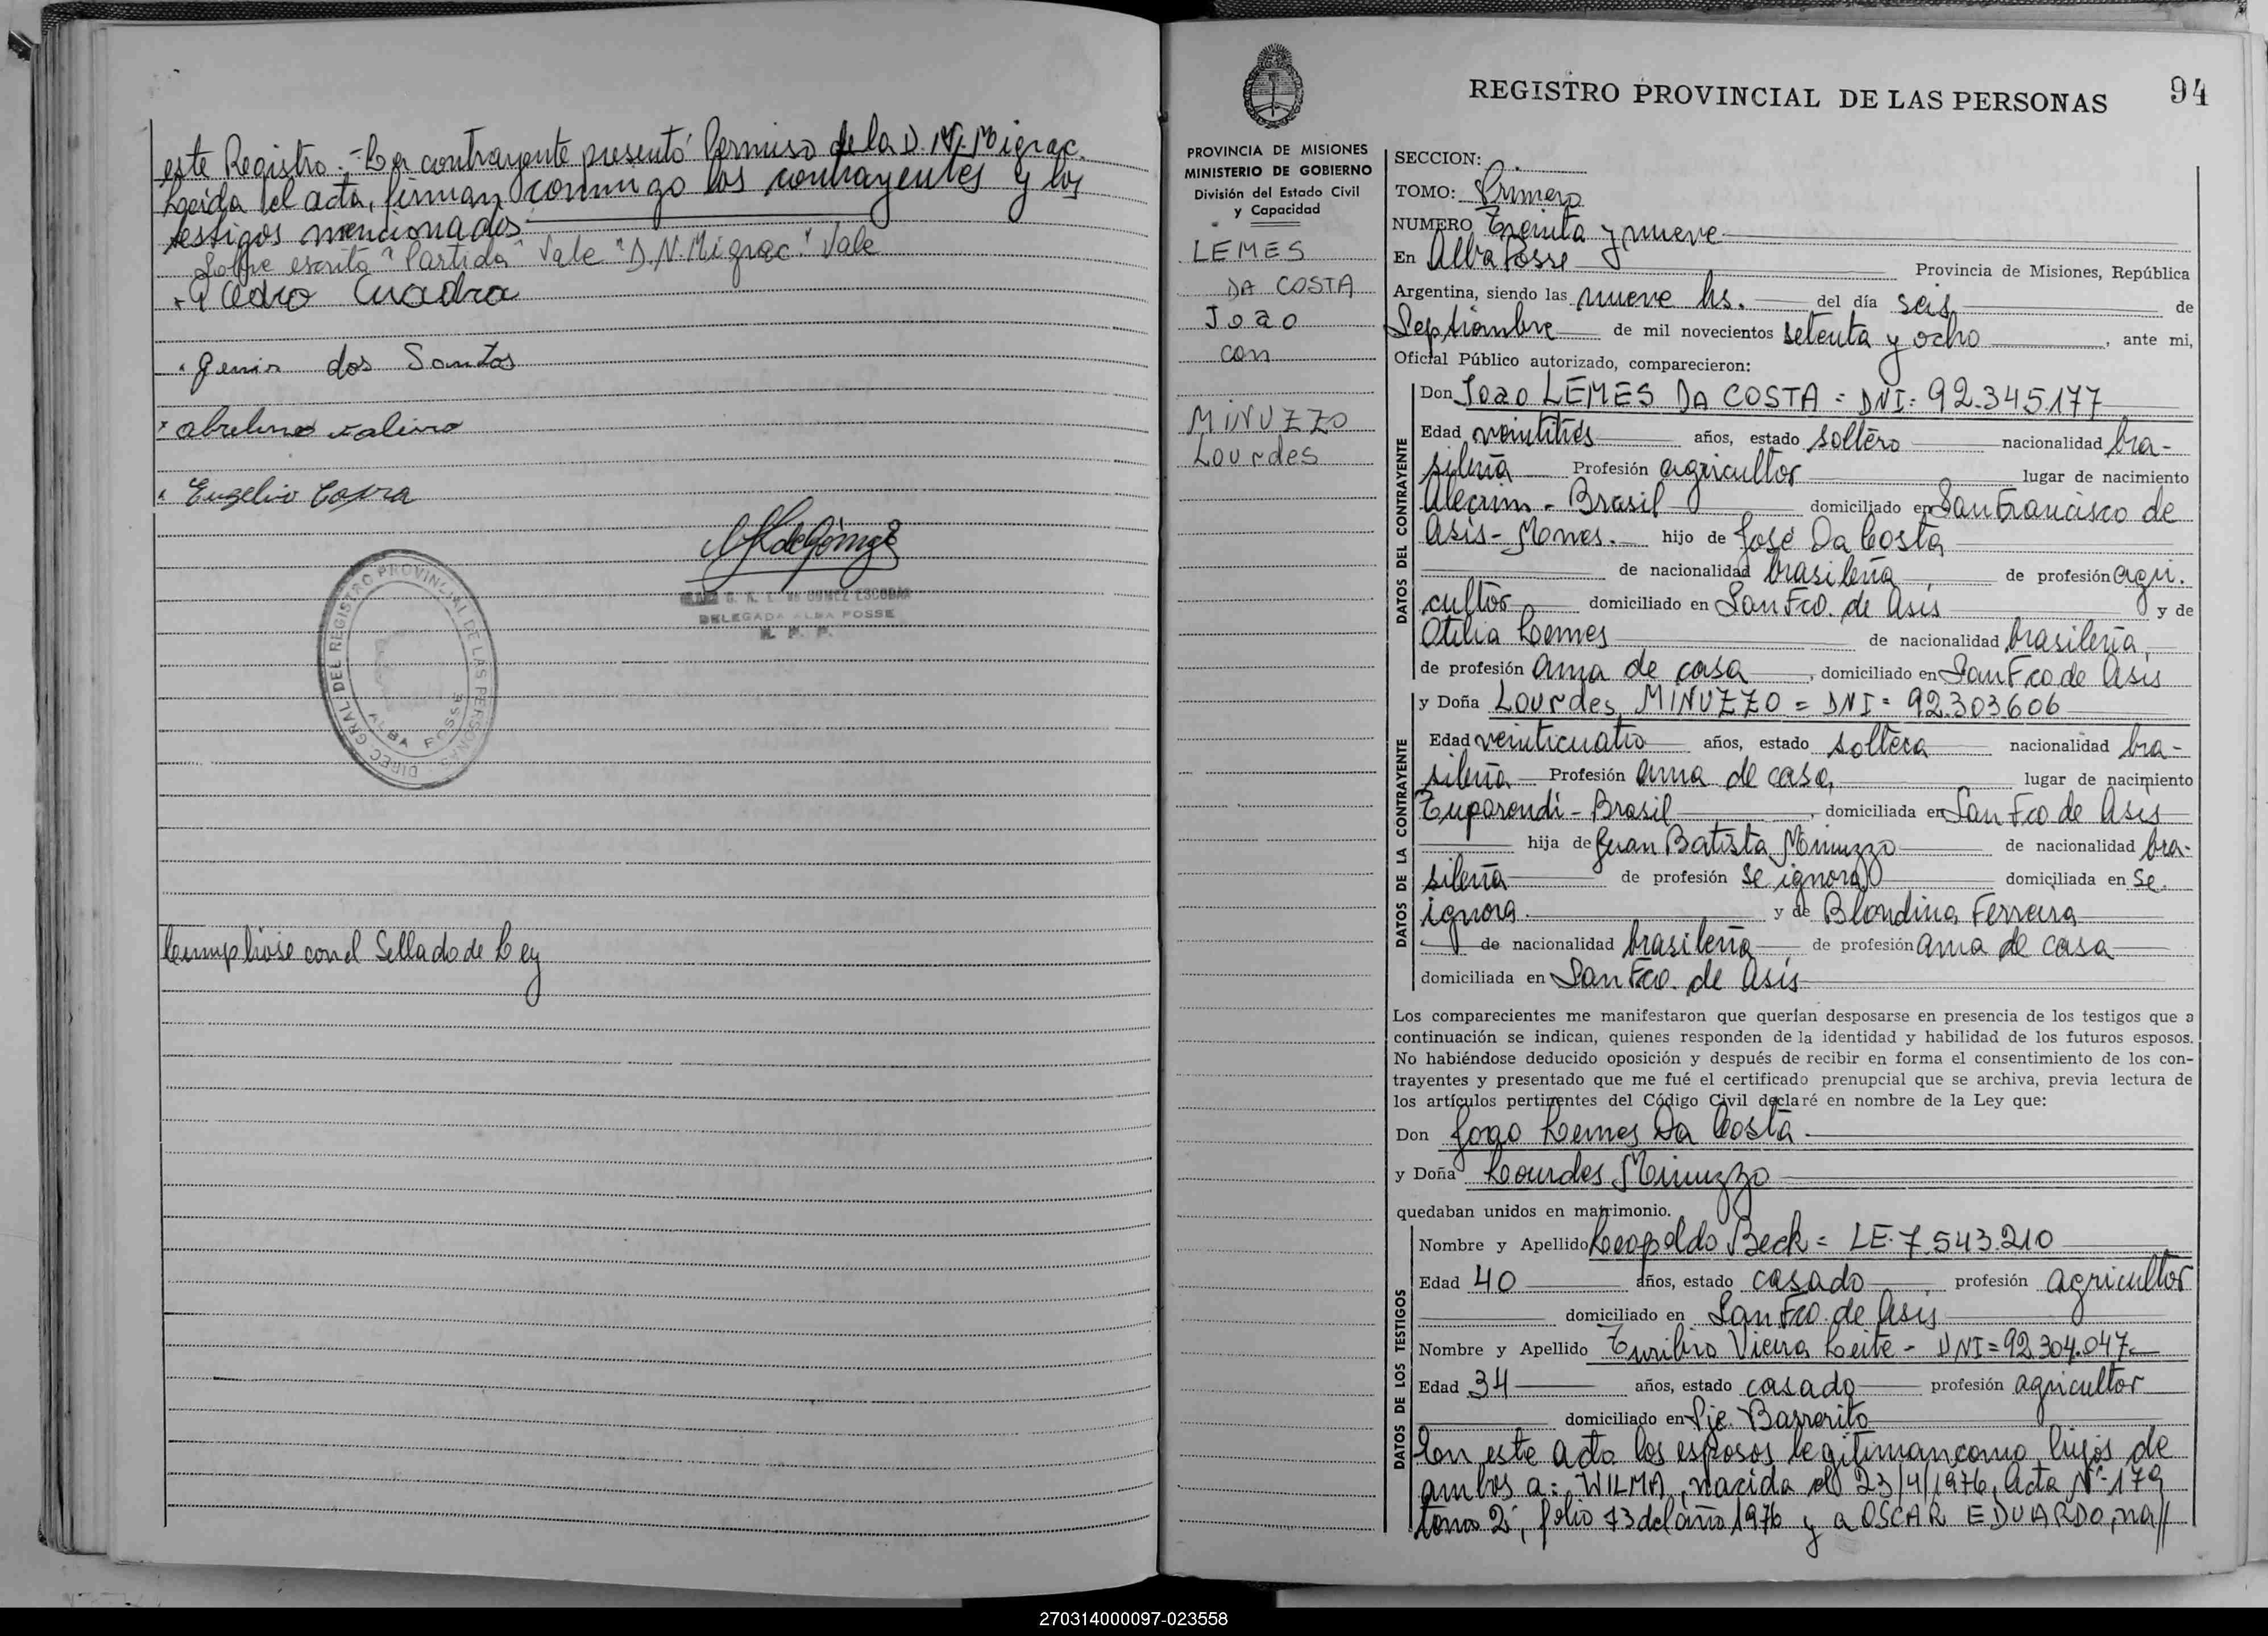 este Registro.- La contrayente presentó Permiso de la D. N. Migrac.
Leída el acta, firman conmigo los contrayentes y los
testigos mencionados
Sobre escrita "Partida" Vale "D.N.Migrac." Vale
Pedro Cuadra
Genir dos Santos
Eugelio Costa
G. K. L. de GOMEZ ESCOBAR
DELEGADA ALBA POSSE
R. P. P.
DIREC. GRAL DEL REGISTRO PROVINCIAL DE LAS PERSONAS
ALBA POSSE
Cumpliose con el Sellado de Ley
REGISTRO PROVINCIAL DE LAS PERSONAS
94
PROVINCIA DE MISIONES
MINISTERIO DE GOBIERNO
División del Estado Civil
y Capacidad
LEMES
DA COSTA
Joao
con
MINUZZO
Lourdes
SECCION:
TOMO: Primero
NUMERO Treinta y nueve
En Alba Posse Provincia de Misiones, República
Argentina, siendo las nueve hs. del día seis de
Septiembre de mil novecientos setenta y ocho, ante mi,
Oficial Público autorizado, comparecieron:
DATOS DEL CONTRAYENTE
Don Joao LEMES DA COSTA = DNI: 92.345.177
Edad veintitrés años, estado soltero nacionalidad bra-
sileña Profesión agricultor lugar de nacimiento
Alecrim - Brasil domiciliado en San Francisco de
Asis - Mnes. hijo de José Da Costa
de nacionalidad brasileña, de profesión agri.
cultor domiciliado en San Fco. de Asis y de
Otilia Lemes de nacionalidad brasileña,
de profesión ama de casa, domiciliado en San Fco de Asis
DATOS DE LA CONTRAYENTE
y Doña Lourdes MINUZZO = DNI = 92.303606
Edad veinticuatro años, estado soltera nacionalidad bra-
sileña Profesión ama de casa, lugar de nacimiento
Tuparendi - Brasil, domiciliada en San Fco de Asis
hija de Juan Batista Minuzzo de nacionalidad bra-
sileña de profesión se ignora domiciliada en se.
ignora. y de Blondina Ferreira
de nacionalidad brasileña de profesión ama de casa
domiciliada en San Fco. de Asis
Los comparecientes me manifestaron que querían desposarse en presencia de los testigos que a
continuación se indican, quienes responden de la identidad y habilidad de los futuros esposos.
No habiéndose deducido oposición y después de recibir en forma el consentimiento de los con-
trayentes y presentado que me fué el certificado prenupcial que se archiva, previa lectura de
los artículos pertinentes del Código Civil declaré en nombre de la Ley que:
Don Joao Lemes Da Costa
y Doña Lourdes Minuzzo
quedaban unidos en matrimonio.
DATOS DE LOS TESTIGOS
Nombre y Apellido Leopoldo Beck = LE. 7.543.210
Edad 40 años, estado casado profesión agricultor
domiciliado en San Fco. de Asis
Nombre y Apellido Turibio Vieira Leite - DNI = 92.304.047
Edad 34 años, estado casado profesión agricultor
domiciliado en Pje. Barrerito
En este acto los esposos legitiman como hijos de
ambos a: WILMA, nacida el 23/4/1976, Acta Nº 179
tomo 2º, folio 73 del año 1976 y a OSCAR EDUARDO, na//
270314000097-023558